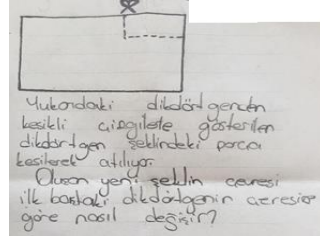 Yukarıdaki dikdörtgenden
kesikli çizgilerle gösterilen
dikdörtgen şeklindeki parça
kesilerek atılıyor.
Oluşan yeni şeklin çevresi
ilk baştaki dikdörtgenin çevresine
göre nasıl değişir?